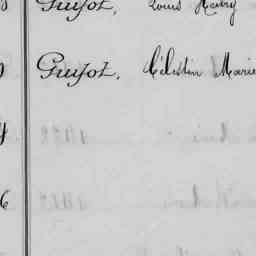 Guyot, Louis Henry
Guyot, Célestin Marie
6